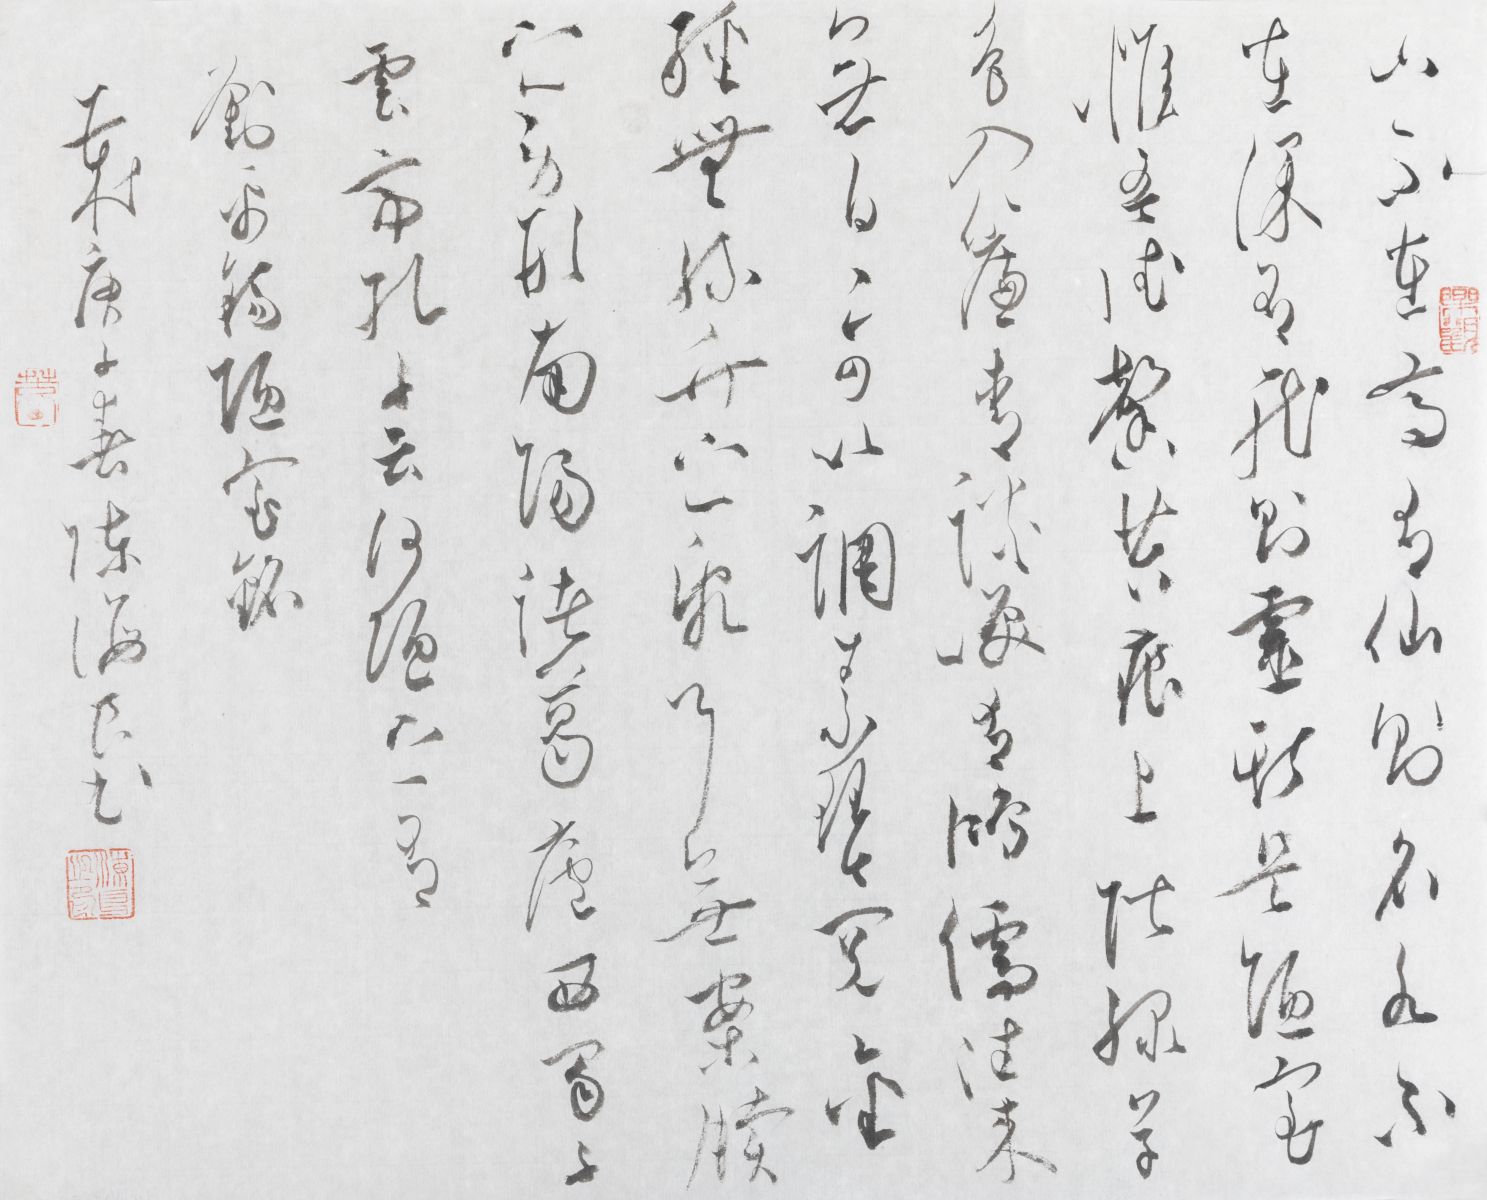 山不在高有仙則名水不
在深有龍則靈斯是陋室
惟吾德馨苔痕上階綠草
色入簾青談笑有鴻儒往來
無白丁可以調素琴閱金
經無絲竹之亂耳無案牘
之勞形南陽諸葛廬西蜀子
雲亭孔子云何陋之有
劉禹錫陋室銘
庚子春陳海良書